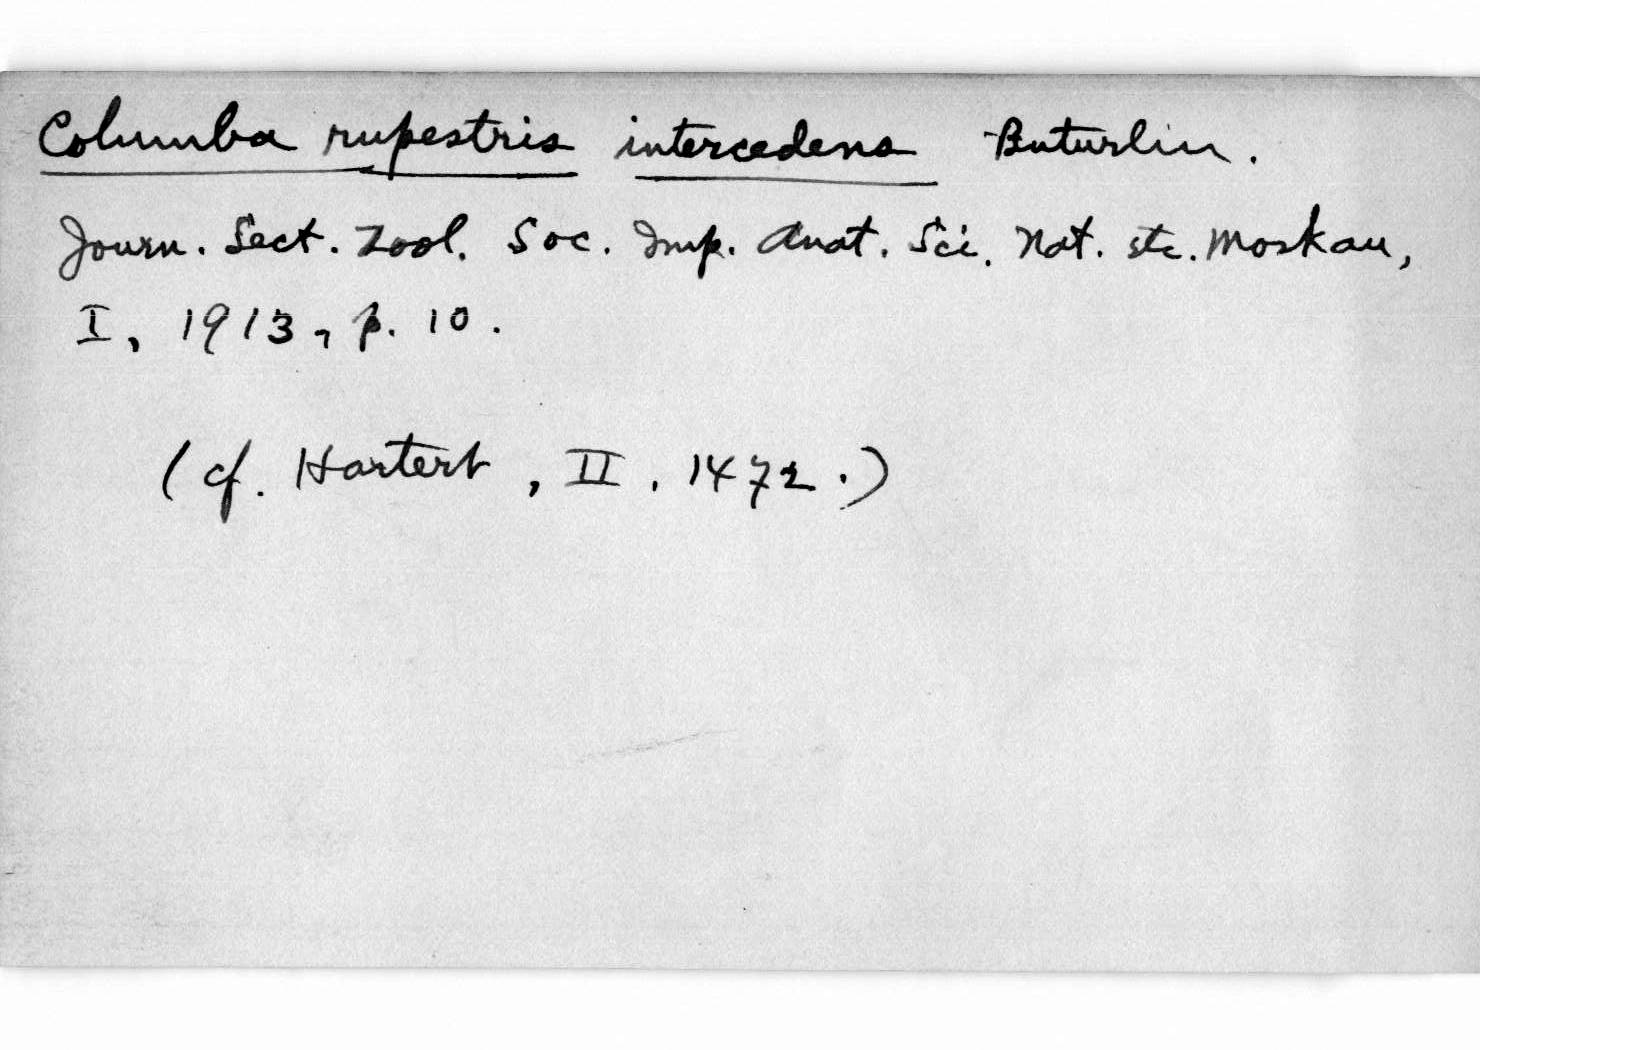 Columba rupestris intercedens Buturlin.
Journ. Sect. Zool. Soc. Imp. Anat. Sci. Nat. etc. Moskau,
I, 1913, p. 10.
(cf. Hartert, II, 1472.)